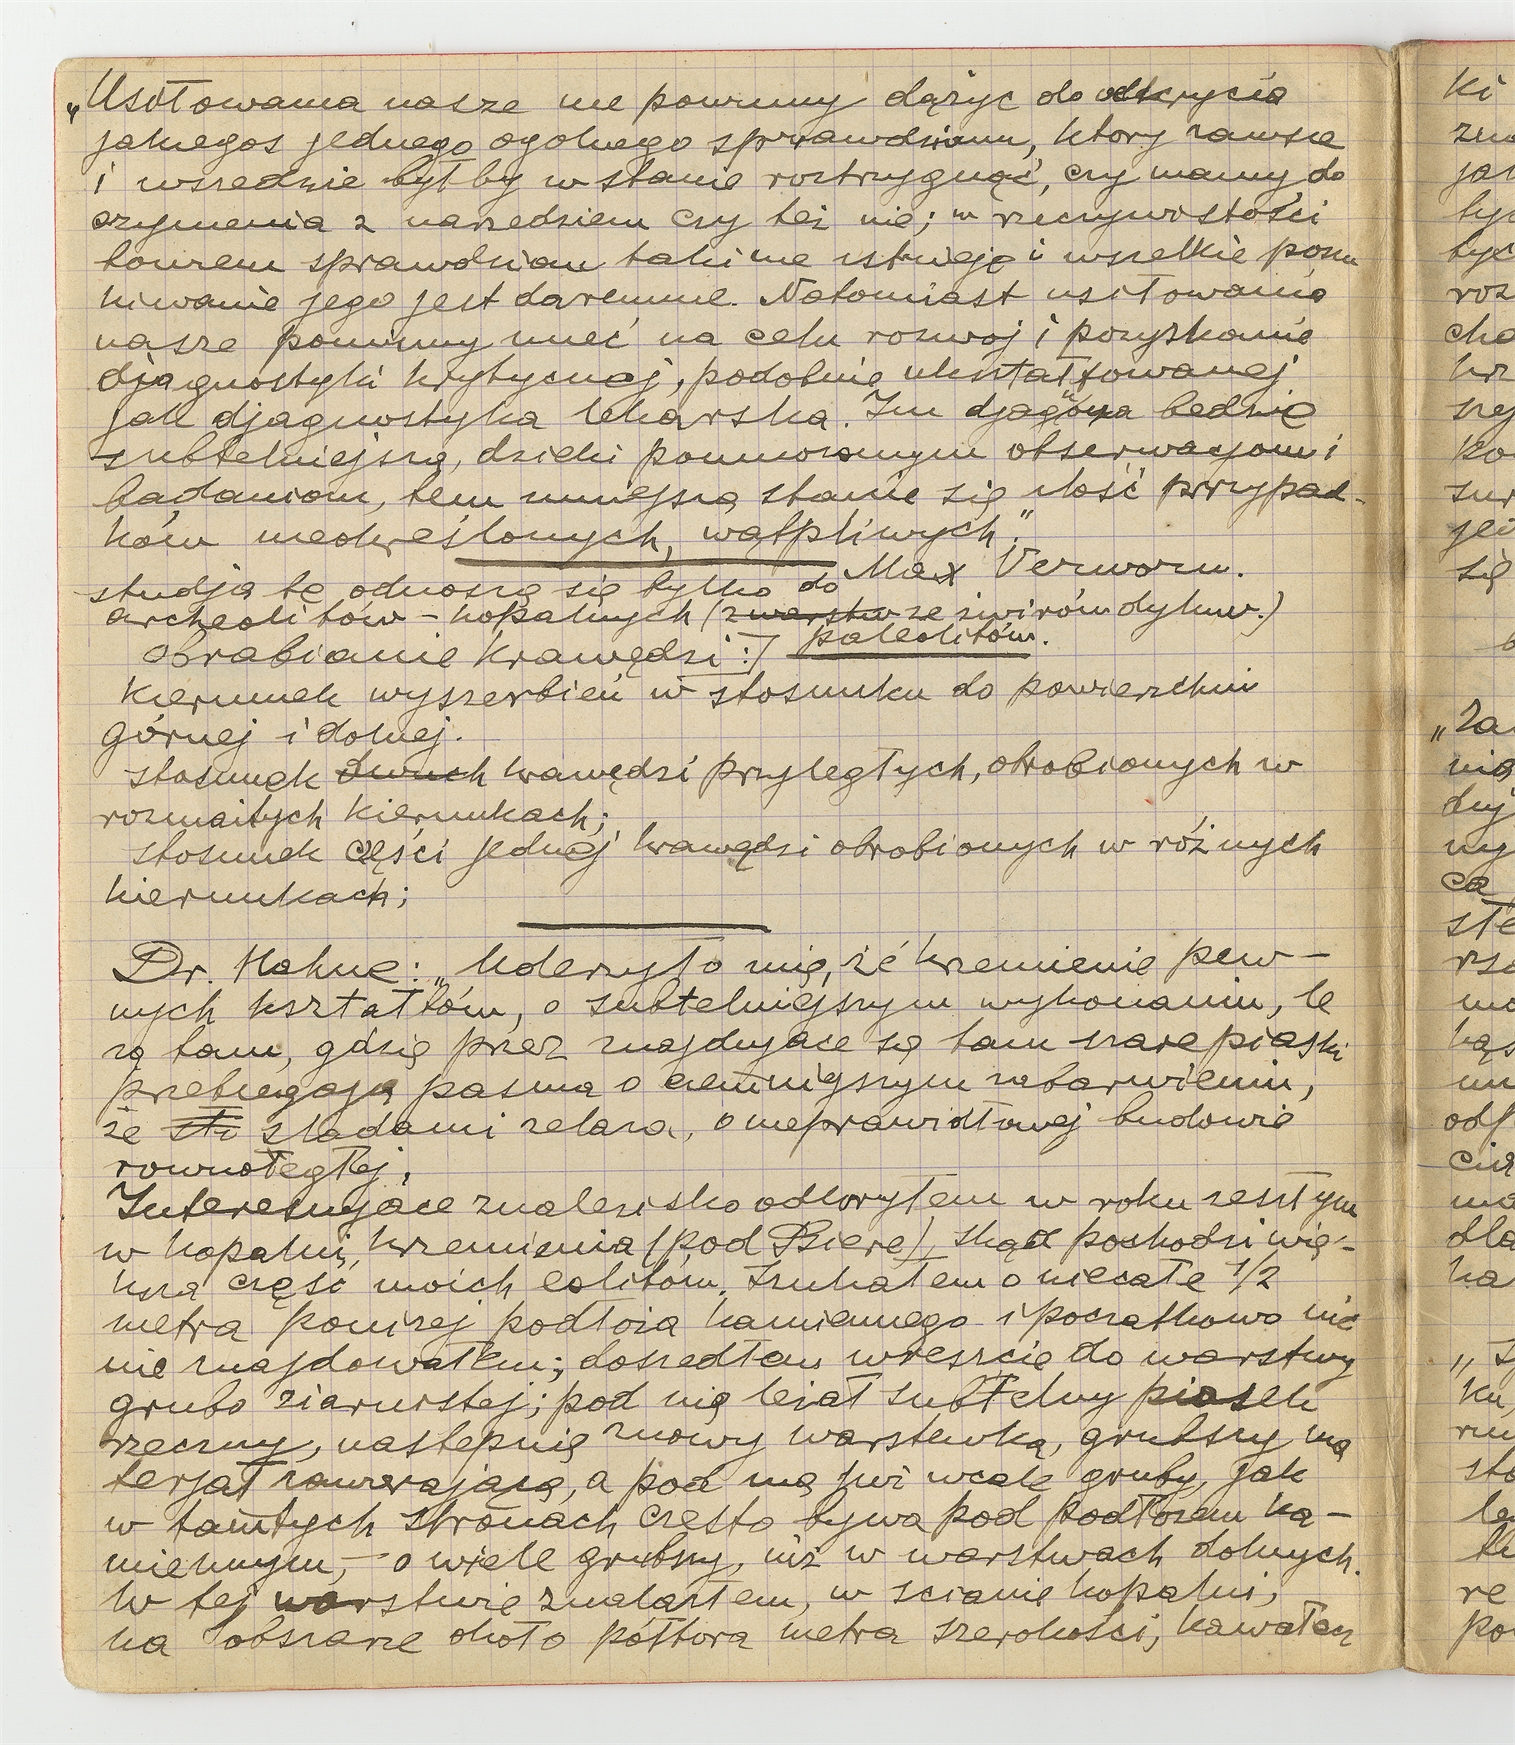 „Usiłowania nasze nie powinny dążyć do odkrycia
jakiegos jednego ogolnego sprawdzianu, ktory zawsze
i wszedzie byłby w stanie roztrzygnąć, czy mamy do
czynienia z narzedziem czy też nie; w rzeczywistości
bowiem sprawdzian taki nie istnieje i wszelkie poszu
kiwanie jego jest daremne. Natomiast usiłowania
nasze powinny mieć na celu rozwoj i pozyskanie
djagnostyki krytycznej, podobnie ukształtowanej
jak djagnostyka lekarska. Im djagnoza bedzie
subtelniejszą, dzieki pomnożonym obserwacjom i
badaniom, tem mniejszą stanie się ilość przypad-
ków nieokreślonych, wątpliwych."
Max Verworn.
studja te odnoszą się tylko do
archeolitów – kopalnych (z warstw ze żwirów dyluw.)
paleolitów.
Obrabianie krawędzi:]
Kierunek wyszerbień w stosunku do powierzchni
górnej i dolnej.
stosunek dwuch krawędzi przyległych, obrobionych w
rozmaitych kierunkach;
stosunek części jednej krawędzi obrobionych w różnych
kierunkach;
Dr. Hahne: „Uderzyło mię, że krzemienie pew–
nych kształtów, o subtelniejszym wykonaniu, le
żą tam, gdzie przez znajdujące się tam szare piaski
przebiegają pasma o ciemniejszym zabarwieniu,
ze sladami zelaza, o nieprawidłowej budowie
rownoległej.
Interesujące znalezisko odkryłem w roku zeszłym
w kopalni krzemienia (pod Biere), skąd pochodzi wię-
ksza część moich eolitów. Szukałem o niecałe 1/2
metra poniżej podłoża kamiennego i początkowo nic
nie znajdowałem; doszedłem wreszcie do warstwy
grubo ziarnistej; pod nią leżał subtelny piasek
rzeczny, nastepnie znowy warstewka, grubszy ma
terjał zawierająca, a pod nią żwi wcale gruby, jak
w tamtych stronach często bywa pod podłożem ka–
miennym, – o wiele grubszy, niż w warstwach dolnych.
W tej warstwie znalazłem, w scianie kopalni,
na obszarze około półtora metra szerokości, kawałek